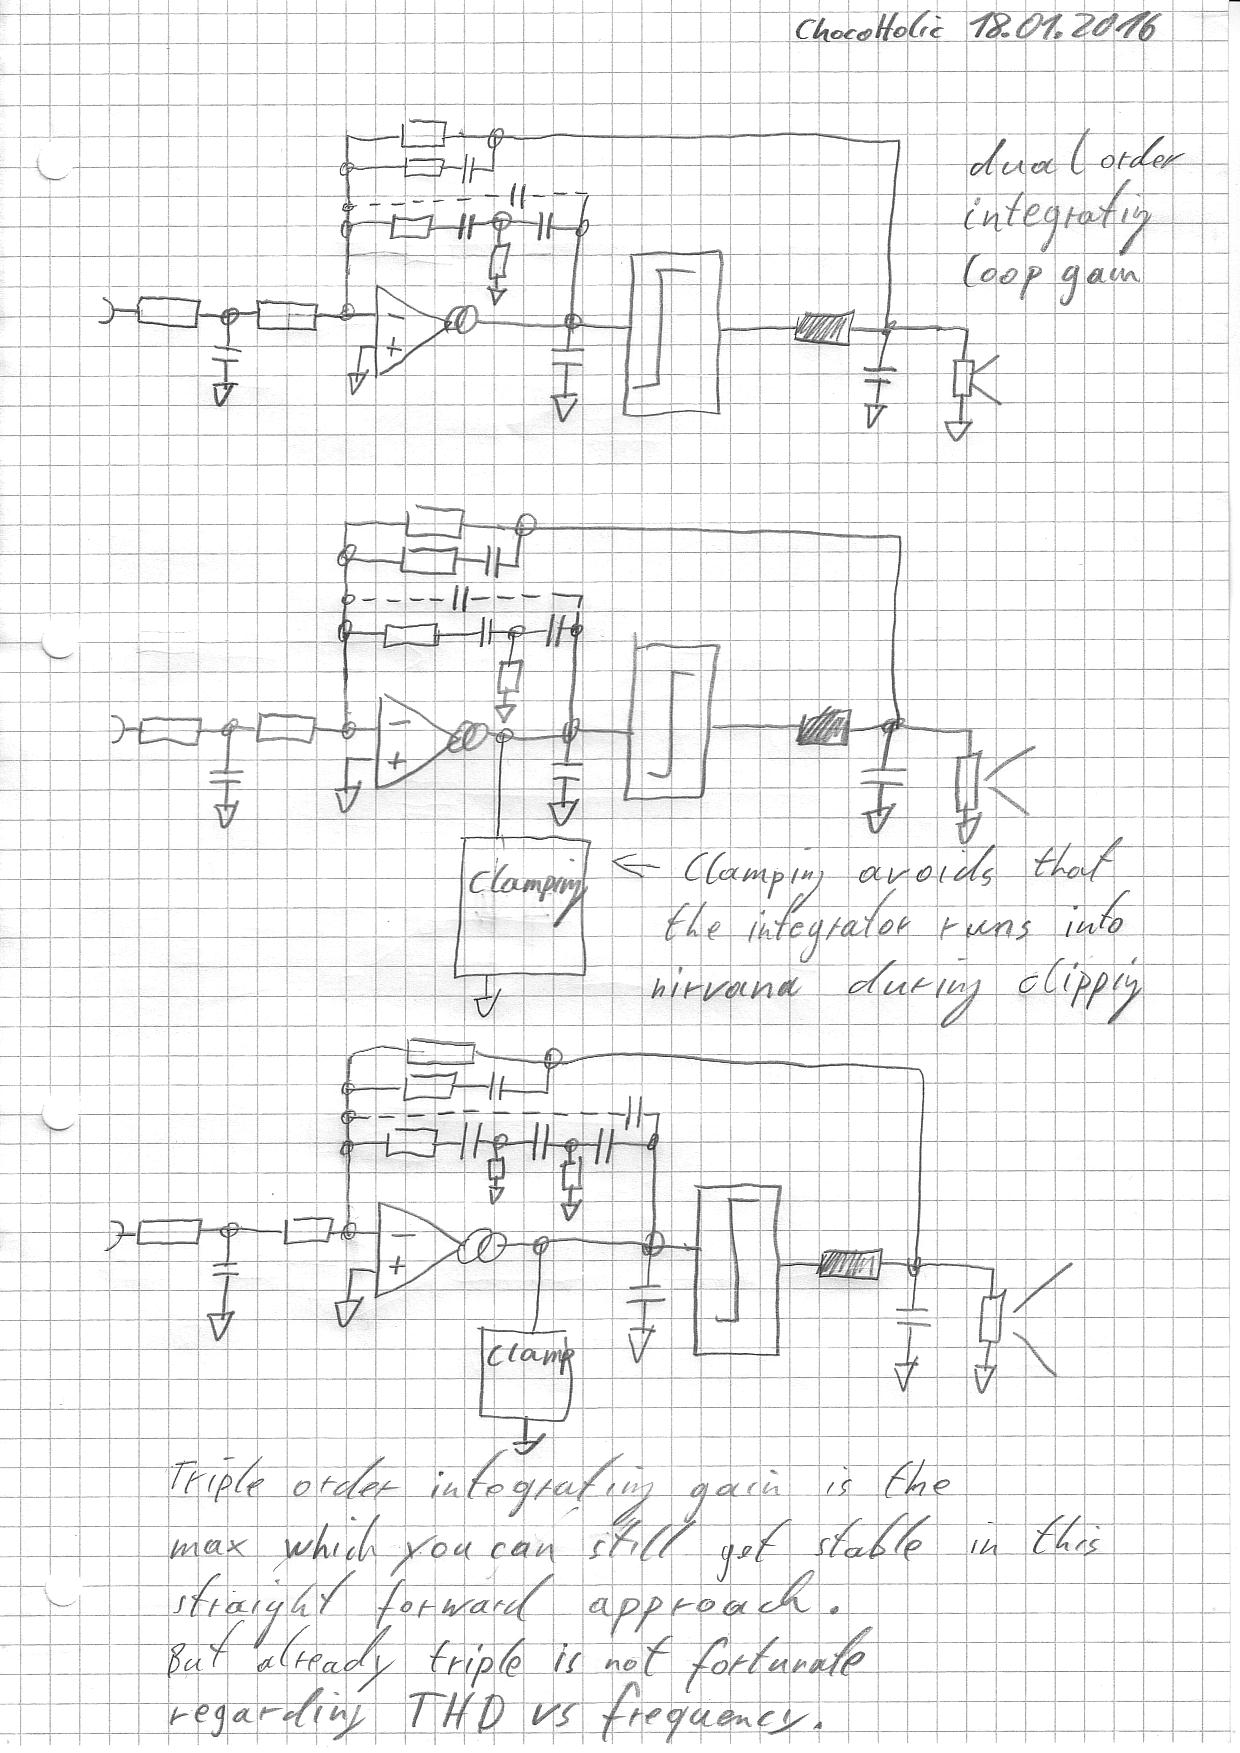 ChocoHolic 18.01.2016
dual order
integratin
loop gain
-
+
-
+
Clamping
← Clamping avoids that
the integrator runs into
nirvana during clippin
-
+
Clamp
Triple order integrating gain is the
max which you can still get stable in this
straight forward approach.
But already triple is not fortunate
regarding THD vs frequency.